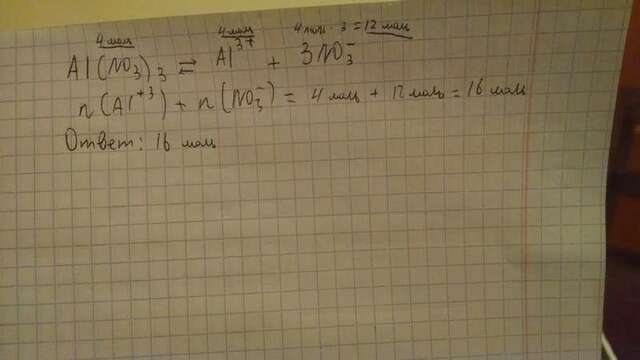 4 моль 4 моль 4 моль · 3 = 12 моль
Al(NO₃)₃ ⇄ Al³⁺ + 3NO₃⁻
n(Al⁺³) + n(NO₃⁻) = 4 моль + 12 моль = 16 моль
Ответ: 16 моль